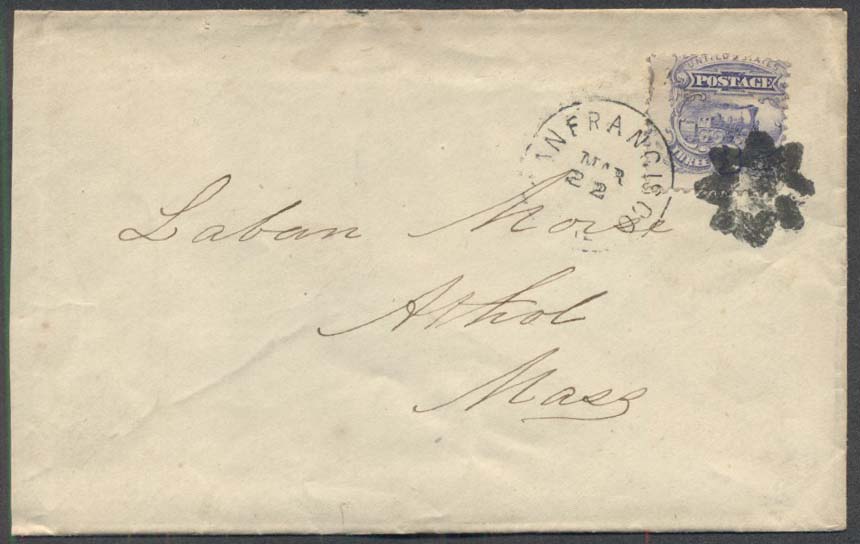 UNITED STATES
POSTAGE
THREE
SAN FRANCISCO
MAR
22
Laban Morse
Athol
Mass